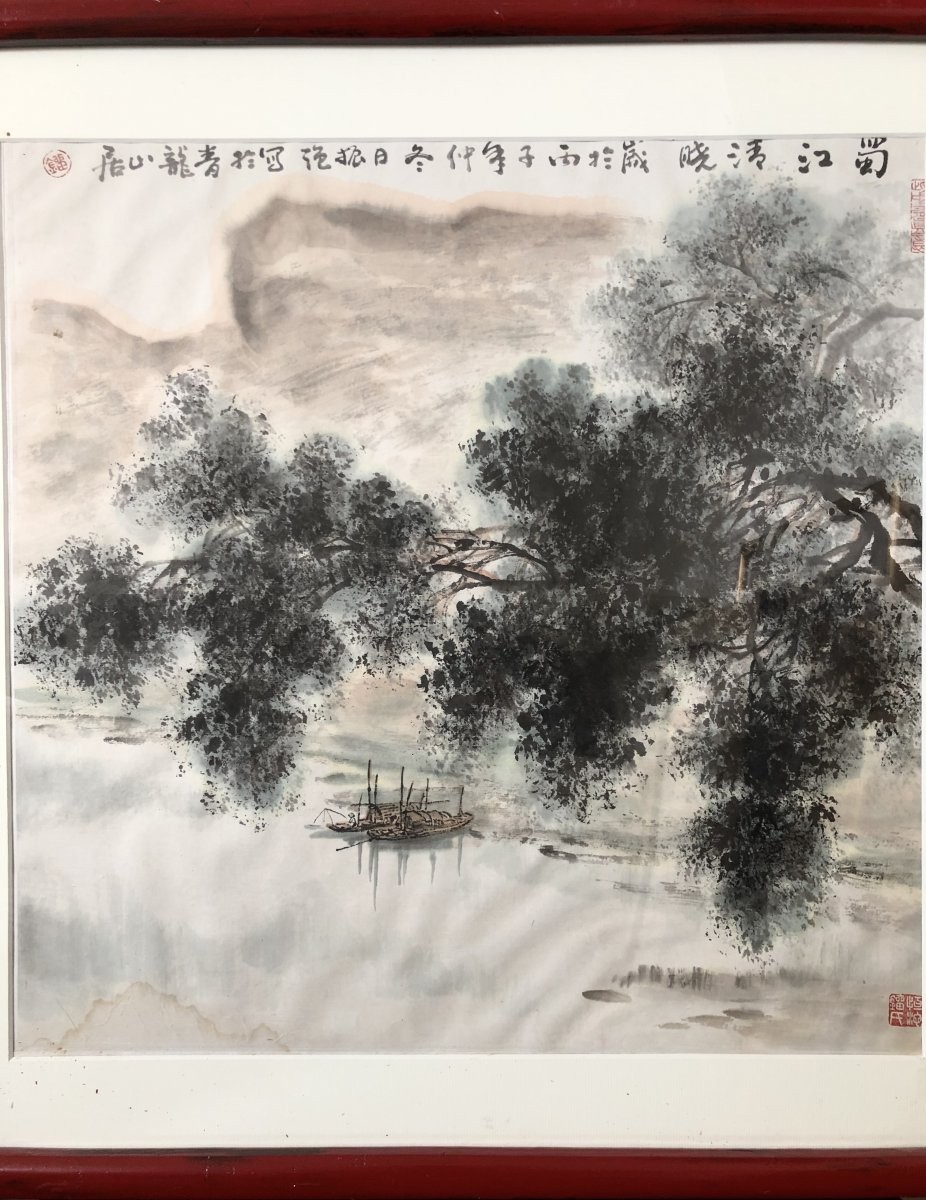 蜀江清晓 歲於丙子年仲冬日振強写於青龍山居